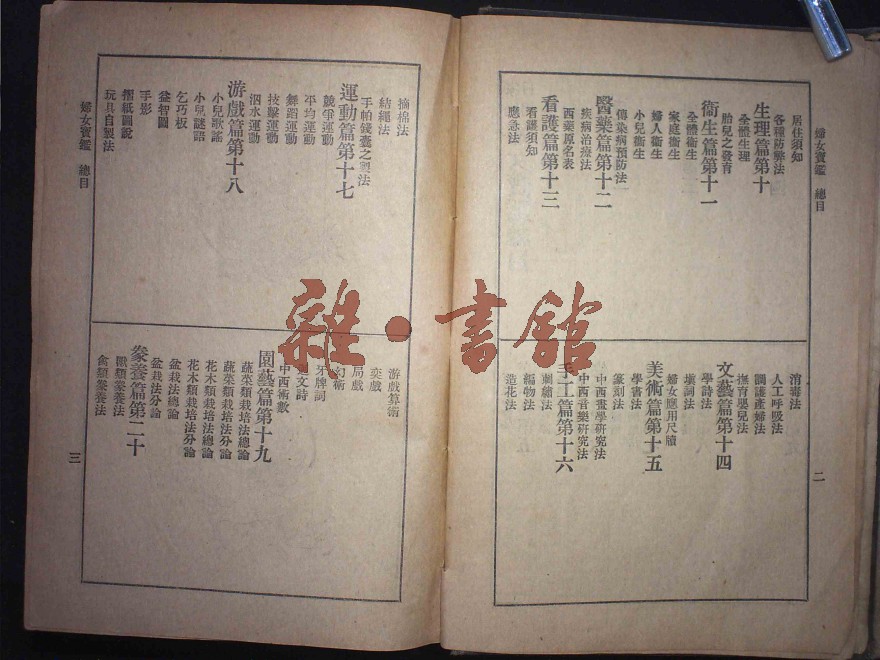 婦女寶鑑 總目
居住須知
各種防弊法
生理篇第十
全體生理
胎兒之發育
衞生篇第十一
全體衞生
家庭衞生
婦人衞生
小兒衞生
傳染病預防法
醫藥篇第十二
疾病治療法
西藥原名表
看護篇第十三
看護須知
應急法
消毒法
人工呼吸法
調護產婦法
撫育嬰兒法
文藝篇第十四
學詩法
塡詞法
婦女應用尺牘
美術篇第十五
學書法
篆刻法
中西畫學研究法
中西音樂研究法
手工篇第十六
刺繡法
編物法
造花法
二
摘綿法
結繩法
手帕錢囊之製法
運動篇第十七
競爭運動
平均運動
舞蹈運動
技擊運動
泅水運動
游戲篇第十八
小兒歌謠
小兒謎語
乞巧板
益智圖
手影
摺紙圖說
玩具自製法
游戲算術
奕戲
局戲
幻術
牙牌詞
文詩
中西術數
園藝篇第十九
蔬菜類栽培法總論
蔬菜類栽培法分論
花木類栽培法總論
花木類栽培法分論
盆栽法總論
盆栽法分論
豢養篇第二十
獸類豢養法
禽類豢養法
婦女寶鑑 總目
三
雜·書館